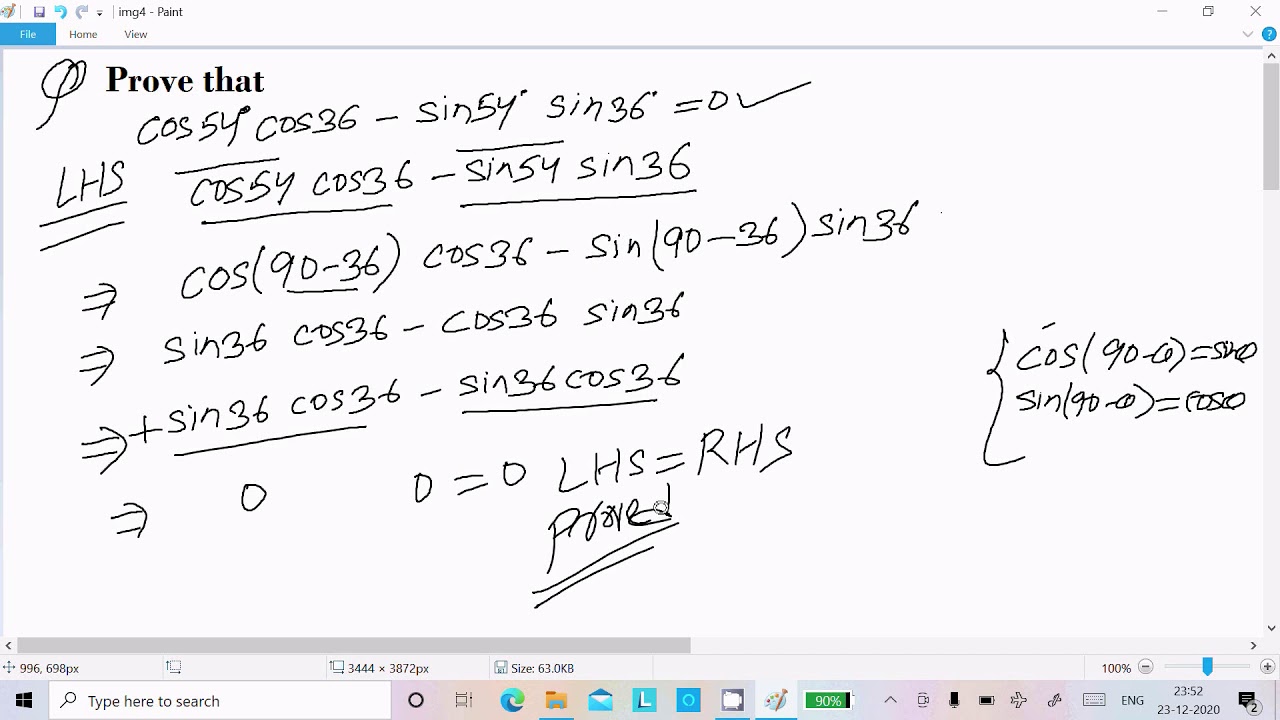 img4 - Paint
File Home View
Prove that
cos54° cos36 - sin54° sin36° = 0
LHS cos54 cos36 - sin54 sin36
⇒ cos(90-36) cos36 - sin(90-36) sin36
⇒ sin36 cos36 - cos36 sin36
⇒ +sin36 cos36 - sin36 cos36
⇒ 0 0 = 0 LHS = RHS
Proved
cos(90-θ)=sinθ
sin(90-θ)=cosθ
996, 698px 3444 × 3872px Size: 63.0KB 100%
Type here to search 90% ENG 23:52
23-12-2020 2